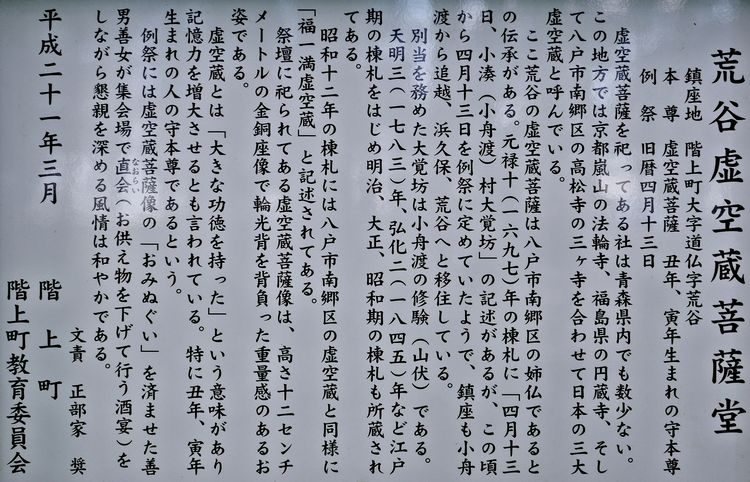 荒谷虚空蔵菩薩堂
鎮座地　階上町大字道仏字荒谷
本　尊　虚空蔵菩薩　丑年、寅年生まれの守本尊
例　祭　旧暦四月十三日
　虚空蔵菩薩を祀ってある社は青森県内でも数少ない。
この地方では京都嵐山の法輪寺、福島県の円蔵寺、そし
て八戸市南郷区の高松寺の三ヶ寺を合わせて日本の三大
虚空蔵と呼んでいる。
　ここ荒谷の虚空蔵菩薩は八戸市南郷区の姉仏であると
の伝承がある。元禄十（一六九七）年の棟札に「四月十三
日、小湊（小舟渡）村大覚坊」の記述があるが、この頃
から四月十三日を例祭に定めていたようで、鎮座も小舟
渡から追越、浜久保、荒谷へと移住している。
　別当を務めた大覚坊は小舟渡の修験（山伏）である。
　天明三（一七八三）年、弘化二（一八四五）年など江戸
期の棟札をはじめ明治、大正、昭和期の棟札も所蔵され
てある。
　昭和十二年の棟札には八戸市南郷区の虚空蔵と同様に
「福一満虚空蔵」と記述されてある。
　祭壇に祀られてある虚空蔵菩薩像は、高さ十二センチ
メートルの金銅座像で輪光背を背負った重量感のあるお
姿である。
　虚空蔵とは「大きな功徳を持った」という意味があり
記憶力を増大させるとも言われている。特に丑年、寅年
生まれの人の守本尊であるという。
　例祭には虚空蔵菩薩像の「おみぬぐい」を済ませた善
男善女が集会場で直会（お供え物を下げて行う酒宴）を
なおらい
しながら懇親を深める風情は和やかである。
文責　正部家　奨
平成二十一年三月
階上町
階上町教育委員会